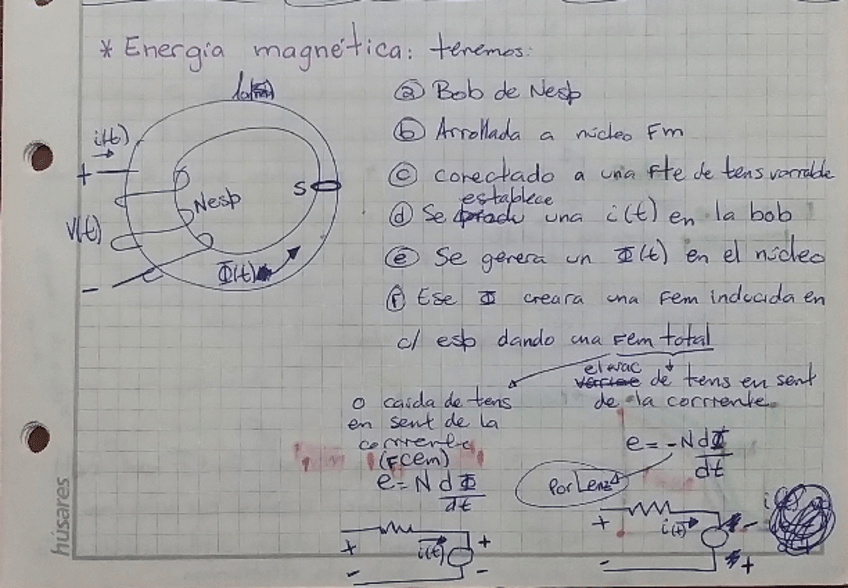 * Energía magnética: tenemos:
i(t)
+
Nesp
S
V(t)
-
Φ(t)
ⓐ Bob de Nesp
ⓑ Arrollada a núcleo Fm
ⓒ conectado a una Fte de tens variable
establece
ⓓ Se una i(t) en la bob
ⓔ Se genera un Φ(t) en el núcleo
ⓕ Ese Φ creara una Fem inducida en
c/ esp dando una Fem total
elevac
de tens en sent
de la corriente
o caida de tens
en sent de la
corriente
(FCem)
e = N dΦ
dt
e = -N dΦ
dt
Por Lenz
+ i(t) +
- -
+ i(t) -
- +
húsares